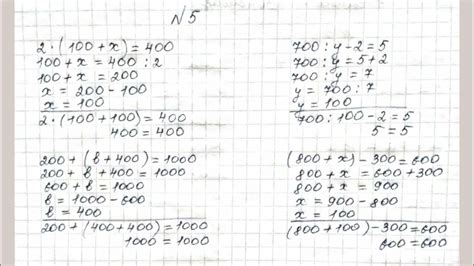 N5
2 · (100 + x) = 400
100 + x = 400 : 2
100 + x = 200
x = 200 - 100
x = 100
2 · (100 + 100) = 400
400 = 400
700 : y - 2 = 5
700 : y = 5 + 2
700 : y = 7
y = 700 : 7
y = 100
700 : 100 - 2 = 5
5 = 5
200 + (b + 400) = 1000
200 + b + 400 = 1000
600 + b = 1000
b = 1000 - 600
b = 400
200 + (400 + 400) = 1000
1000 = 1000
(800 + x) - 300 = 600
800 + x = 600 + 300
800 + x = 900
x = 900 - 800
x = 100
(800 + 100) - 300 = 600
600 = 600